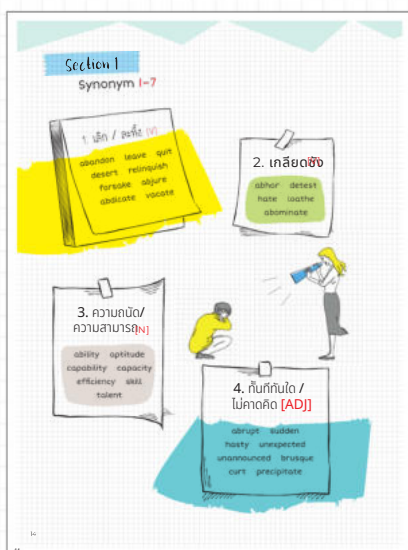 Section 1
Synonym 1-7
1. เลิก / ละทิ้ง [V]
abandon leave quit
desert relinquish
forsake abjure
abdicate vacate
2. เกลียดชัง
abhor detest
hate loathe
abominate
3. ความถนัด/
ความสามารถ[N]
ability aptitude
capability capacity
efficiency skill
talent
4. ทันทีทันใด /
ไม่คาดคิด [ADJ]
abrupt sudden
hasty unexpected
unannounced brusque
curt precipitate
14